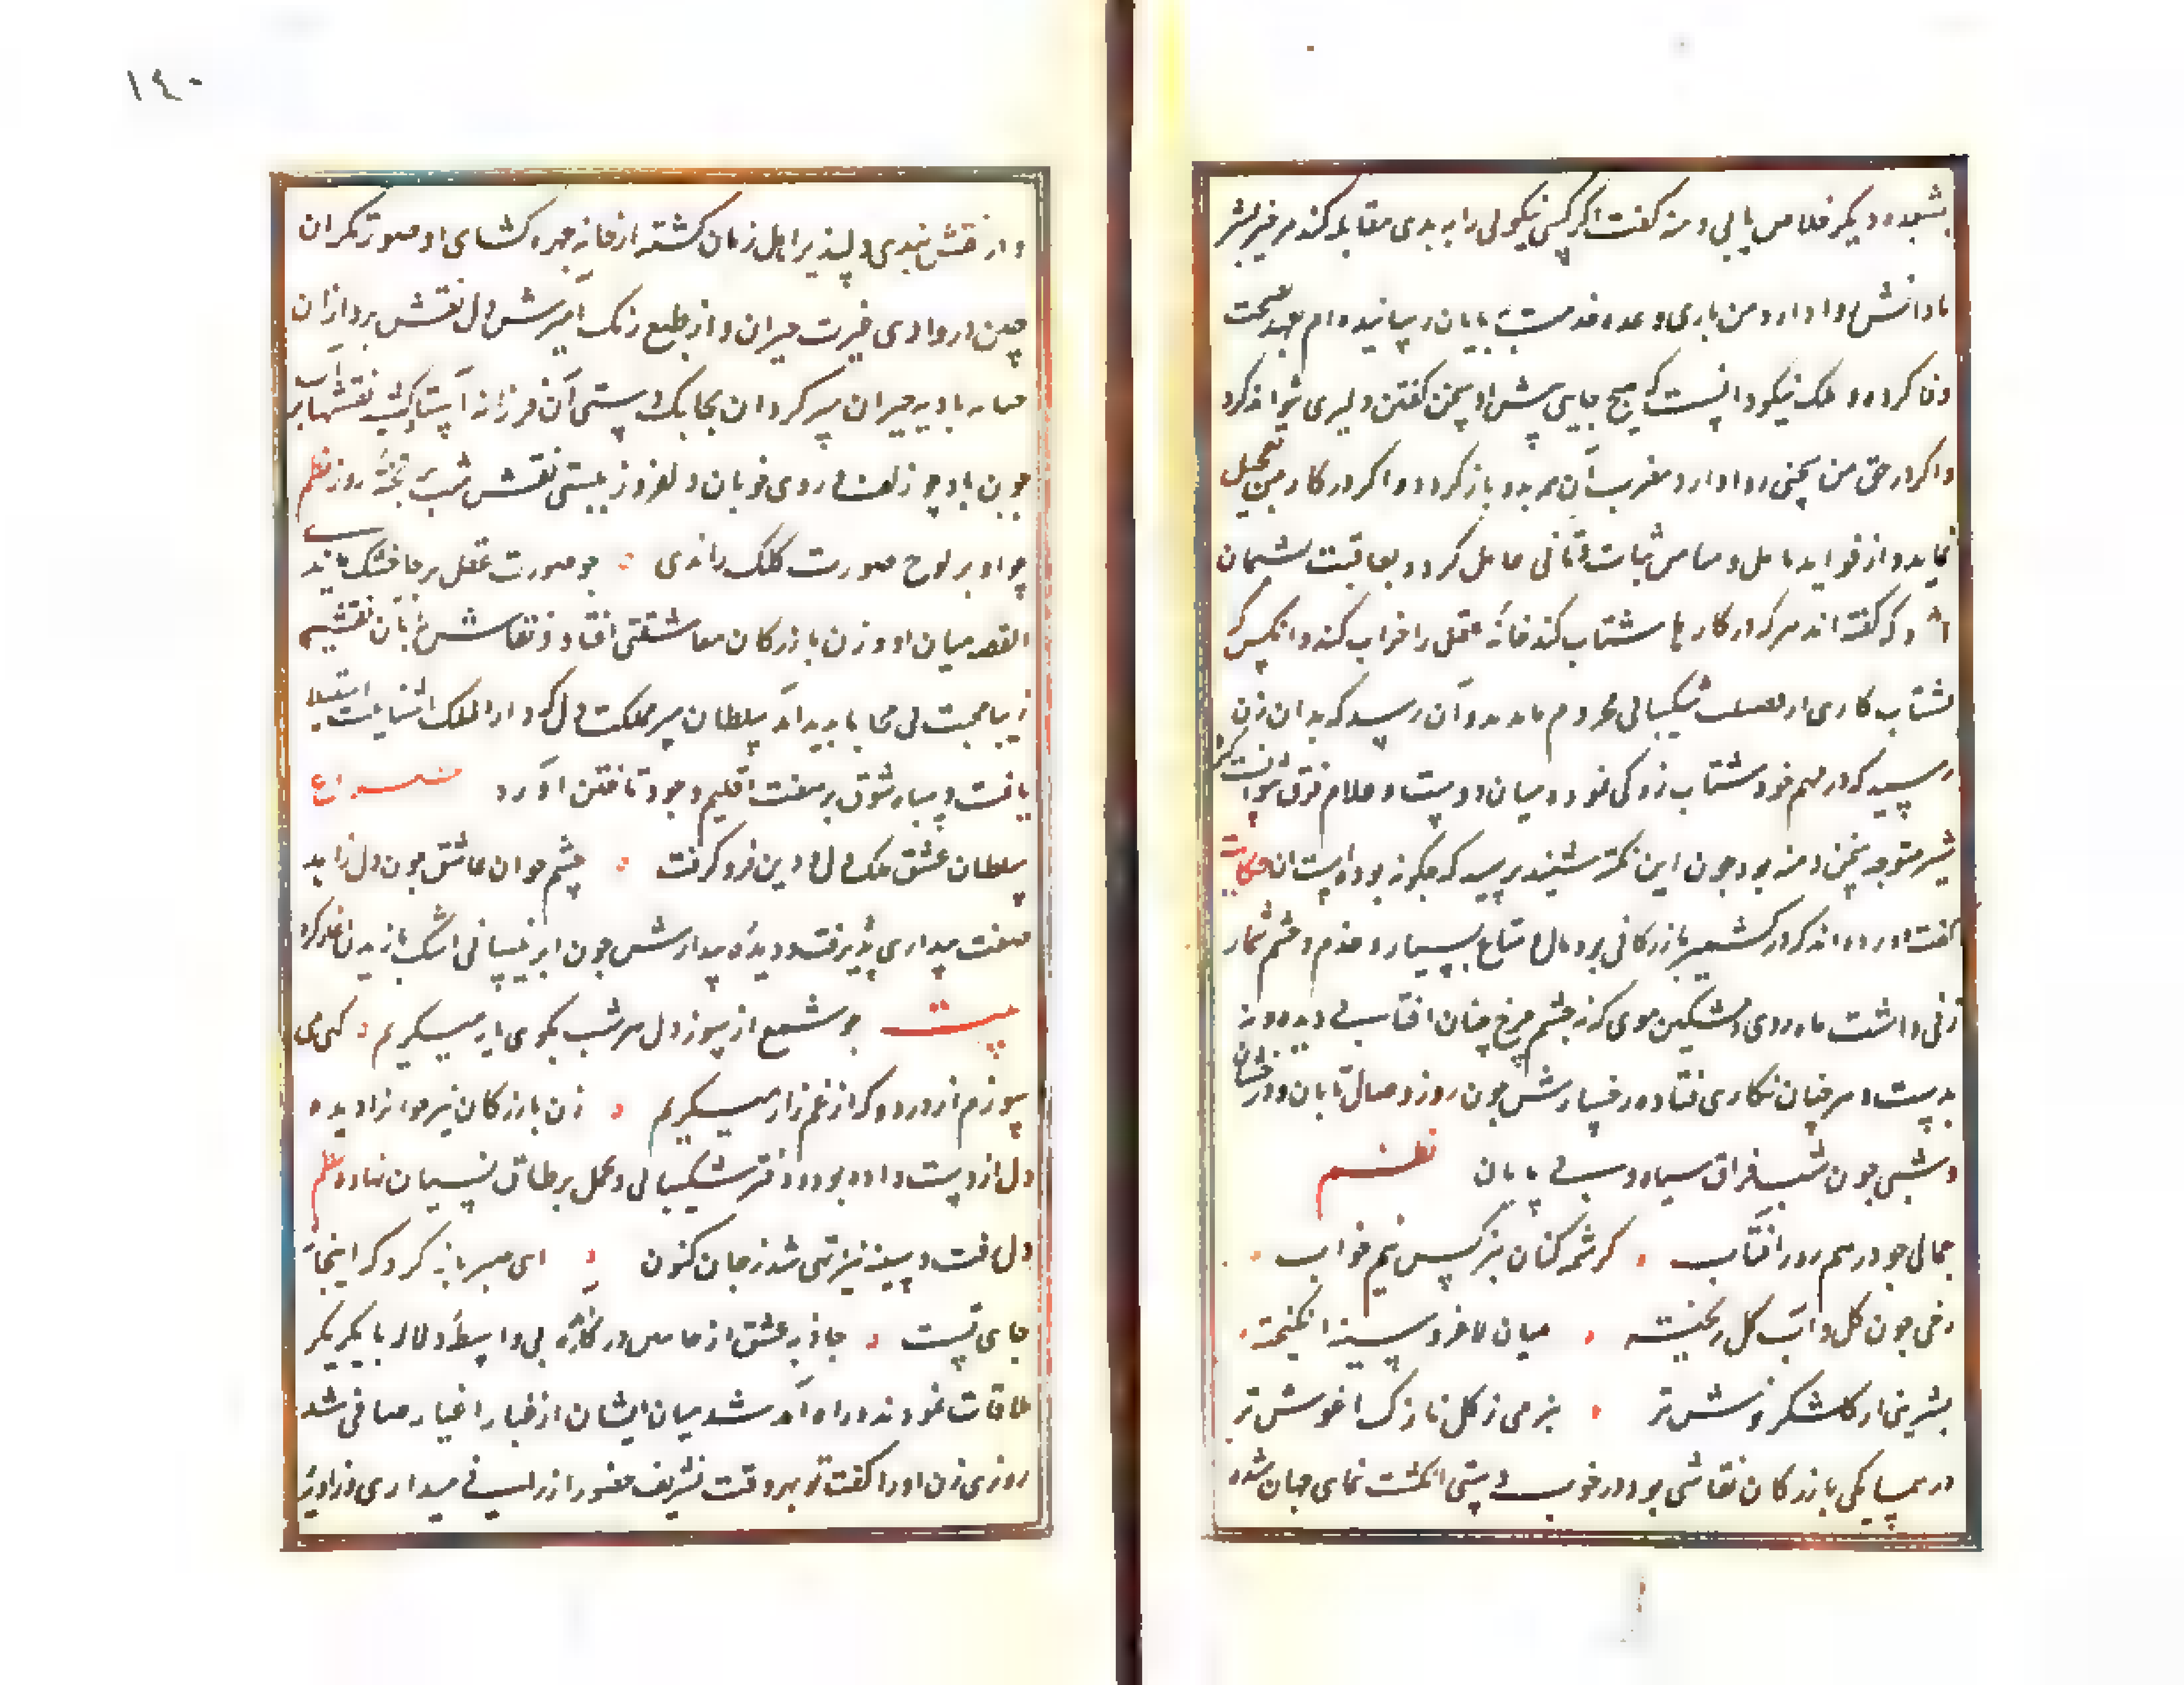 بشعبده دیکر خلاص یابی دمنه کفت اکر کسی نیکوئی را به بدی مقابله کند و خیر بشر
پاداش روا دارد من باری وعده خدمت بپایان رسانیده ام بعهد صحبت
وفا کرده و ملک نیکو دانست که هیچ جای پیش او سخن کفتن دلیری نتواند کرد
و اکر در حق من سخنی روا دارد مضرت آن هم بدو باز کردد و اکر در کار من تعجیل
نماید و از فواید تامل و ثبات و تأنی غافل کردد بعاقبت پشیمان
شود که کفته اند هر که در کارها شتاب کند خانه عقل را خراب کند و آنکس که
بشتاب کاری از فضیلت شکیبائی محروم ماند بدو آن رسد که بدان زن
رسید که در مهم خود شتاب زدکی نمود و میان دوست و غلام فرق نتوانست کرد
شیر متوجه سخن دمنه بود چون این نکته شنید پرسید که چکونه بوده است آن حکایت
کفت آورده اند که در کشمیر بازرکانی بود با مال و متاع بسیار و خدم و حشم بیشمار
زنی داشت ماه روی مشکین موی که نه چشم چرخ چنان آفتابی دیده و نه
بدست دهر چنان نکاری فتاده رخسارش چون روز وصال تابان و درخشان
و شبی چون شب فراق سیاه و بی پایان نظم
جمالی چو در نیم روز آفتاب کرشمه کنان نرکس نیم خواب
رخی چون کل و آب کل ریخته میان لاغر و سینه انکیخته
بشیرینی از کلشکر نوش تر بنرمی ز کل نازک آغوش تر
در همسایکی بازرکان نقاشی بود در خوب دستی انکشت نمای جهان شده
١٤٠
و از نقش بندی دلپذیر اهل زمان کشته از خامه چهره کشای او صورتکران
چین در وادی غیرت حیران و از طبع رنک آمیزش دل نقش پردازان
بادیه حیران سرکردان بچابک دستی آن فرزانه استاد کش نقشها بر آب
چون باد چو زلف و روی خوبان دلفروز ببستی نقش شب بر تخته روز نظم
چو او بر لوح صورت کلک راندی چو صورت عقل بر جا خشک ماند
القصه میان او و زن بازرکان معاشقتی افتاد و نقاش را بآن نقش
زیبا محبت بی محابا پدید آمد سلطان مهر مملکت دل که دار الملک است استیلا
یافت و سپاه شوق بر هفت اقلیم وجود تاختن آورد مصراع
سلطان عشق ملک دل و دین فرو کرفت چشم جوان عاشق چون دل زاهد
صفت بیداری پذیرفت و دیده بیدارش چون ابر نیسانی اشک باریدن آغاز کرد
بیت چو شمع از سوز دل هر شب بکوی یار میکریم کهی می
سوزم از درد و که از غم زار میکریم زن بازرکان نیز هوا نادیده
دل از دست داده بود و دفتر شکیبائی و تحمل بر طاق نسیان نهاده نظم
دل رفت و سینه نیز تهی شد ز جان کنون ای صبر باز کرد که اینجا
جای تیست جاذبه عشق از جانبین در کار آمد بی واسطه دلال با یکدیکر
ملاقات نمودند و راه آمد شد میان ایشان از غبار اغیار صافی شد
روزی زن او را کفت تو بهر وقت تشریف حضور ارزانی میداری و زاویه